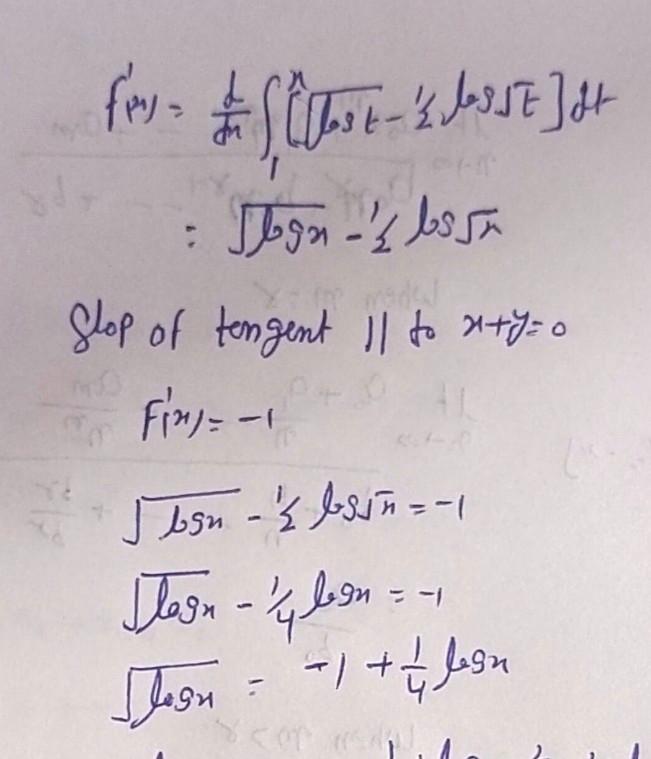 f'(x) = d/dx ∫₁ˣ [√log t - ½ log √t ] dt
= √log x - ½ log √x
Slop of tengent || to x+y=0
F'(x) = -1
√log x - ½ log √x = -1
√log x - ¼ log x = -1
√log x = -1 + ¼ log x